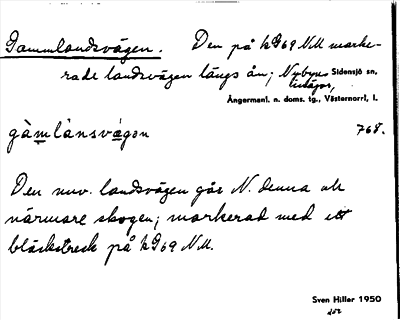 Gammlandsvägen. Den på kG69 NM marke-
rade landsvägen längs ån; Nybyns Sidensjö sn,
Ångermanl. n. doms. tg., Västernorrl. l.
gàmlánsvägen 768.
Den nuv. landsvägen går N. denna och
närmare skogen; markerad med ett
bläckstreck på kG69 NM.
Sven Hiller 1950